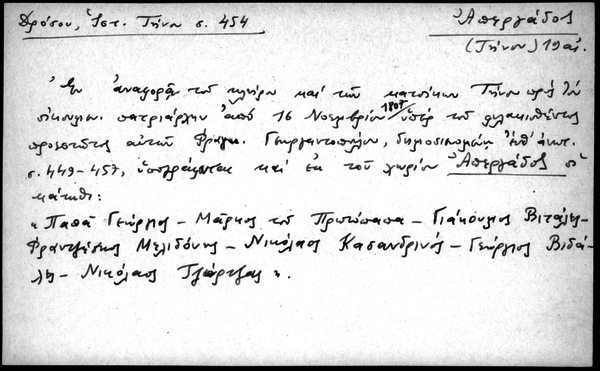 Δρόσου, Ἱστ. Τήνου σ. 454
Ἀπεργάδος
(Τήνου) 19 αἰ.
Ἐν ἀναφορᾷ τοῦ κλήρου καὶ τῶν κατοίκων Τήνου πρὸς τὸν
οἰκουμεν. πατριάρχην ἀπὸ 16 Νοεμβρίου 1807 ὑπὲρ τοῦ φυλακισθέντος
προεστῶτος αὐτῶν Φραγκ. Γεωργαντοπούλου, δημοσιευομένῃ ἐνθ' ἀνωτ.
σ. 449-457, ὑπογράφονται καὶ ἐκ τοῦ χωρίου Ἀπεργάδος οἱ
κάτωθι:
« Παπᾶ Γεώργιος – Μάρκος τοῦ Πρωτόπαπα – Γιακουμος Βιτάλης –
Φραντζέσκος Μελιδόνης – Νικόλαος Κασανδρινός – Γεώργιος Βιδά-
λης – Νικόλαος Τζώρτζης ».